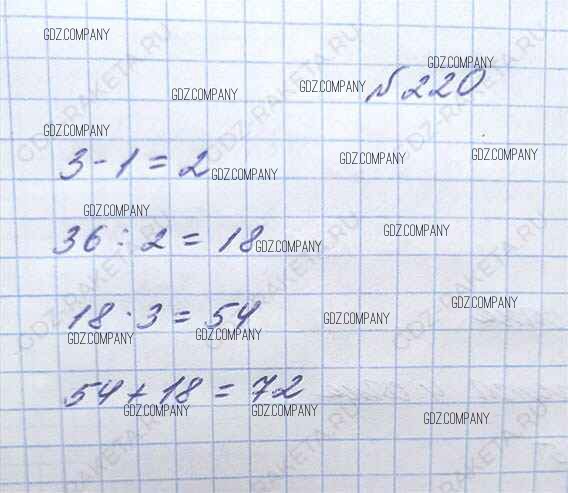 GDZ.COMPANY
GDZ.COMPANY
№ 220
GDZ.COMPANY GDZ.COMPANY
GDZ.COMPANY
3 - 1 = 2
GDZ.COMPANY GDZ.COMPANY GDZ.COMPANY
GDZ.COMPANY
36 : 2 = 18
GDZ.COMPANY GDZ.COMPANY
18 · 3 = 54
GDZ.COMPANY GDZ.COMPANY GDZ.COMPANY GDZ.COMPANY
54 + 18 = 72
GDZ.COMPANY GDZ.COMPANY GDZ.COMPANY
GDZ-RAKETA.RU